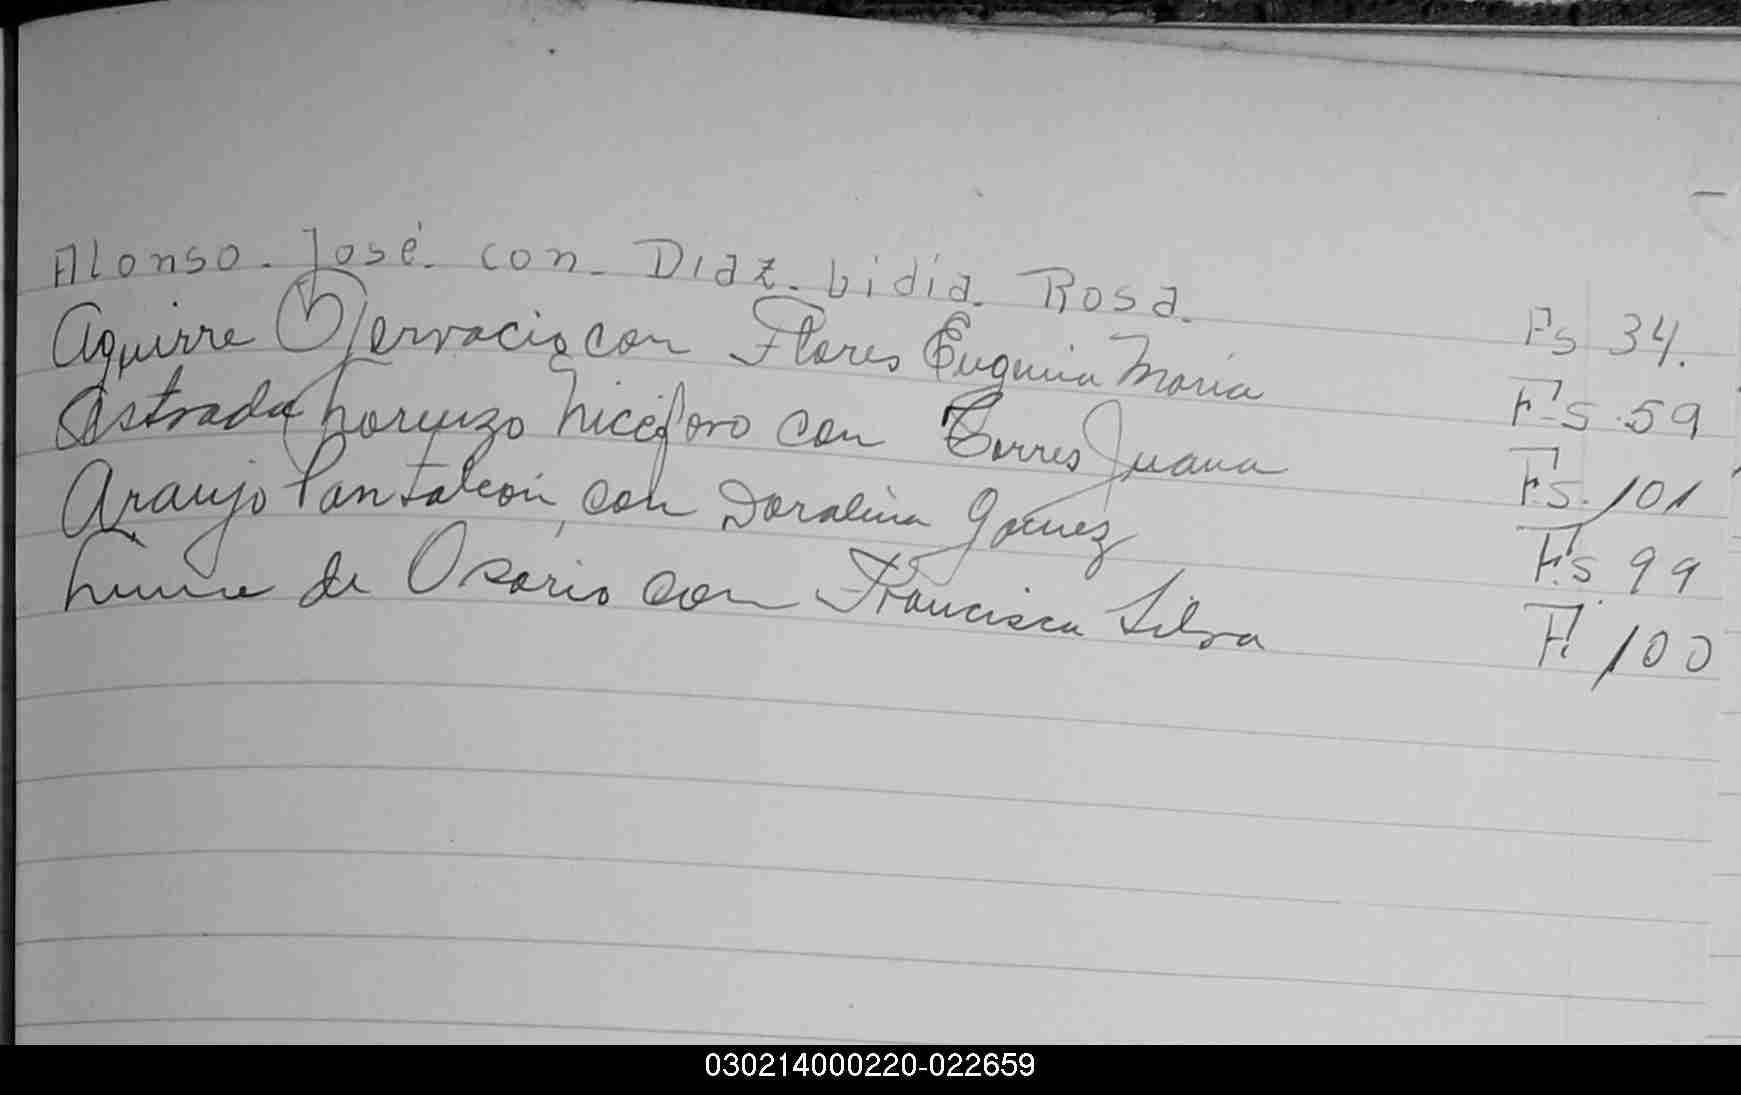 Alonso. José. con. Diaz. Lidia. Rosa. Fs 34.
Aguirre Gervacio con Flores Eugenia Maria Fs. 59
Astrada Lorenzo Niceforo con Torres Juana Fs. 101
Araujo Pantaleon, con Doralina Gomez Fs 99
de Osorio con Francisca Silva F. 100
030214000220-022659